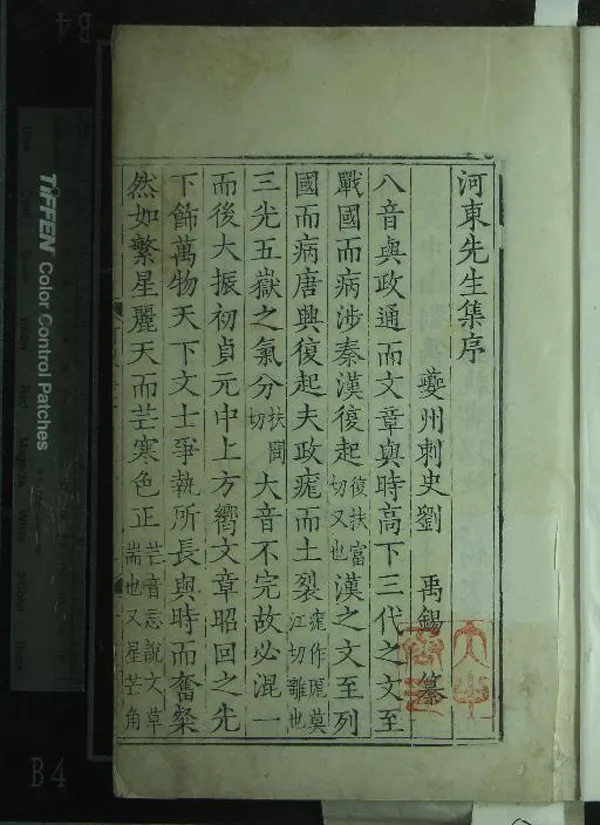 河東先生集序
夔州刺史劉 禹錫 纂
八音與政通而文章與時高下三代之文至
戰國而病涉秦漢復起復扶富切又也漢之文至列
國而病唐興復起夫政痝而土裂痝作厖莫江切離也
三光五嶽之氣分扶問切大音不完故必混一
而後大振初貞元中上方嚮文章昭回之光
下飾萬物天下文士爭執所長與時而奮粲
然如繁星麗天而芒寒色正芒音忘說文草耑也又星芒角
TIFFEN Color Control Patches
B4